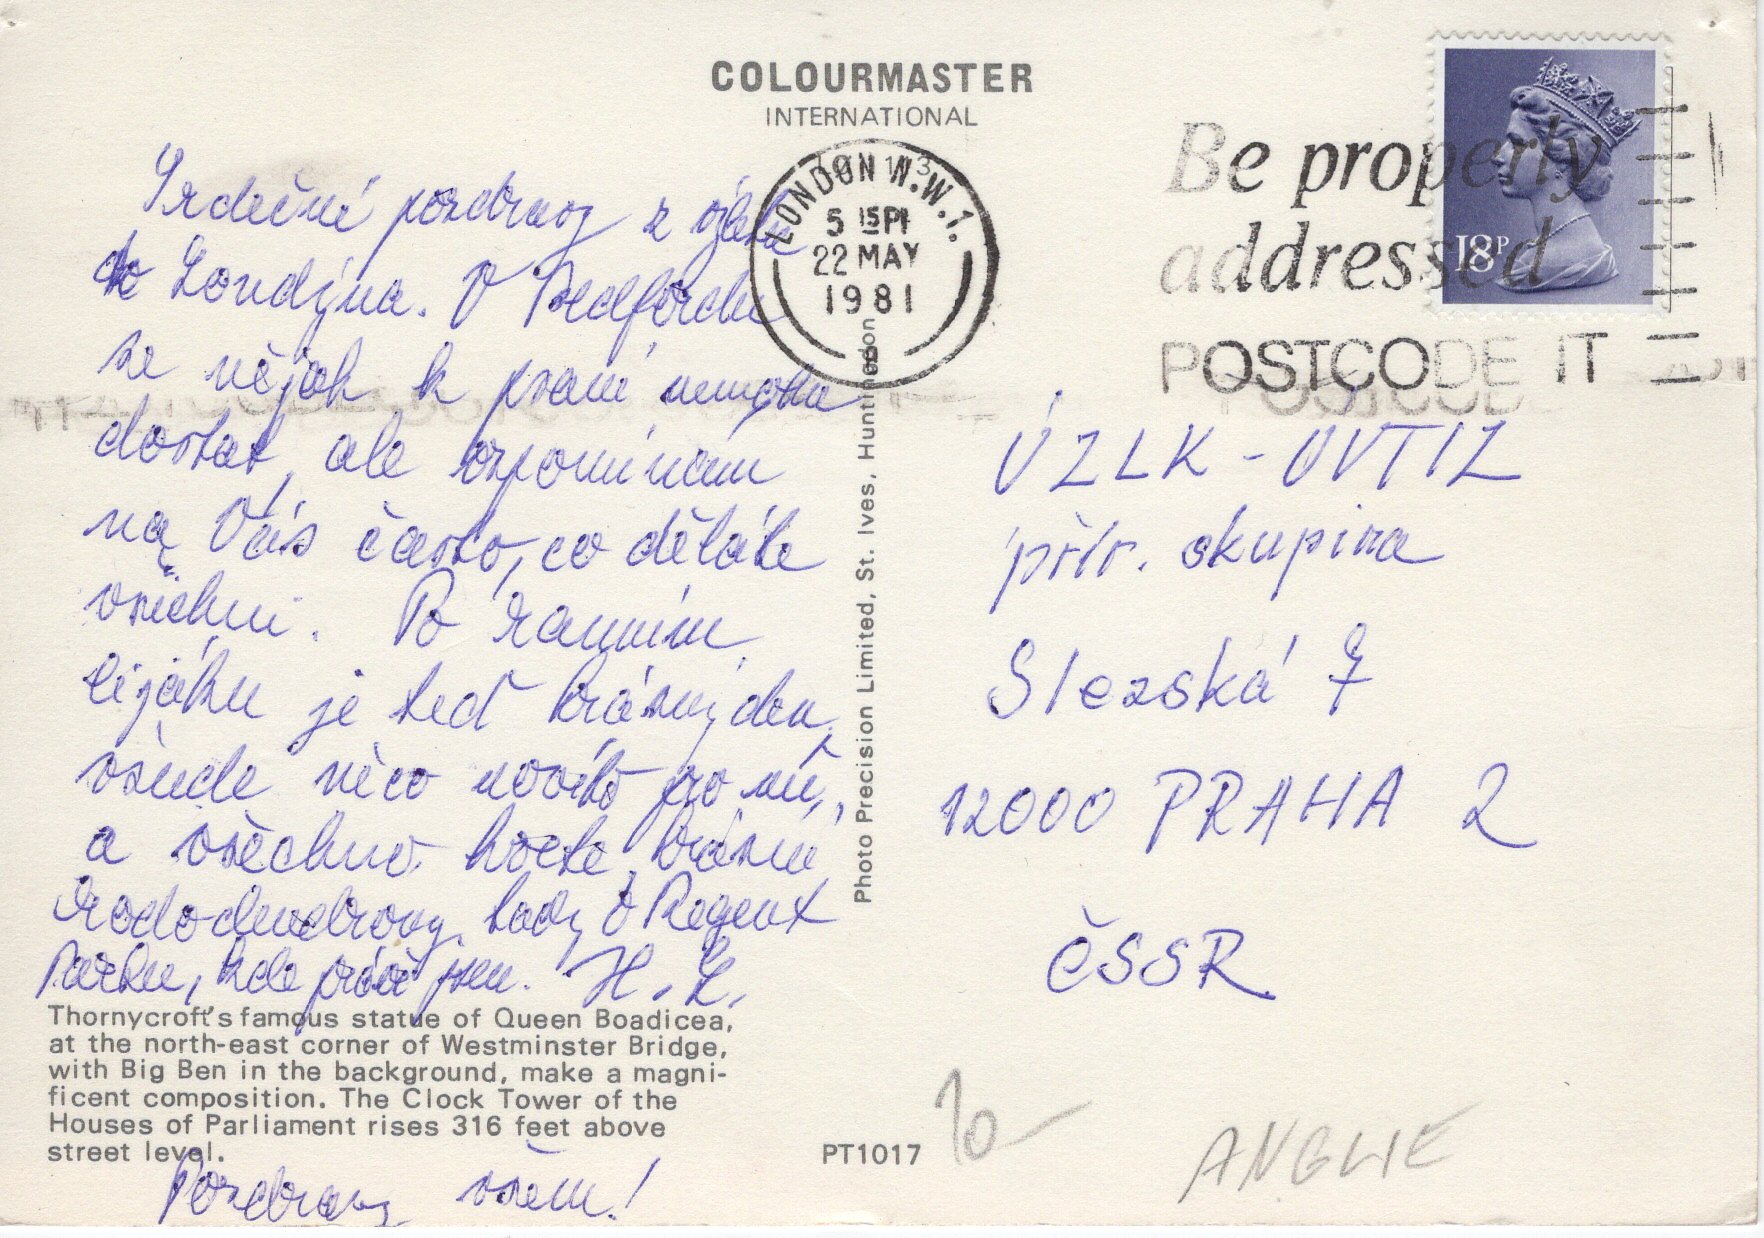 COLOURMASTER
INTERNATIONAL
LONDON N.W.1.
5 15 PM
22 MAY
1981
Be properly
addressed
POSTCODE IT
18P
Srdečné pozdravy z výletu
do Londýna. V Bedfordu
se nějak k psaní nemohu
dostat, ale vzpomínám
na Vás často, co děláte
všichni. Po ranním
lijáku je teď krásný den,
všude něco nového pro mě,
a všechno kvete, krásné
rododendrony tady v Regent
Parku, kde právě jsem. H. L.
Thornycroft's famous statue of Queen Boadicea,
at the north-east corner of Westminster Bridge,
with Big Ben in the background, make a magni-
ficent composition. The Clock Tower of the
Houses of Parliament rises 316 feet above
street level.
Pozdravy všem!
Photo Precision Limited, St. Ives, Huntingdon
PT1017
ÚZLK - ÚVTIZ
přír. skupina
Slezská 7
12000 PRAHA 2
ČSSR
10-
ANGLIE